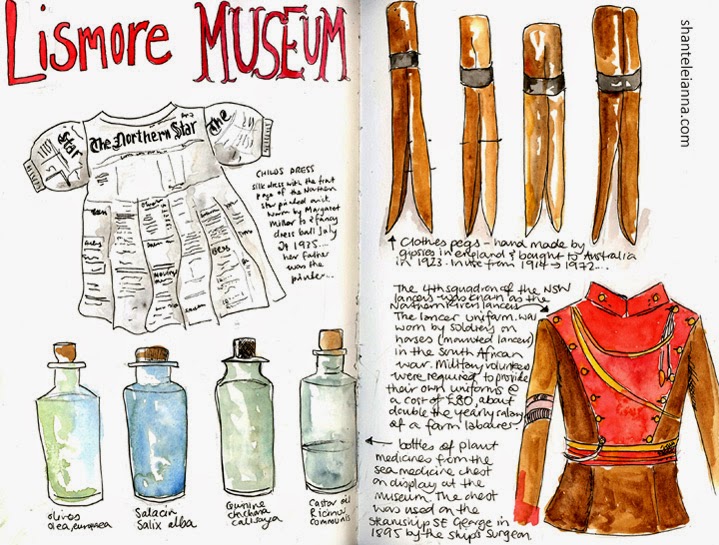 Lismore MUSEUM
The Northern Star
The
Star
CHILDS DRESS
silk dress with the front
page of the Northern
Star printed on it
worn by Margaret
Miller to a fancy
dress ball July
29 1925....
her father
was the
printer...
olives
olea europaea
Salacin
Salix alba
Quinine
chichara
calisaya
Castor oil
Ricinus
communis
shanteleianna.com
↑ Clothes pegs - hand made by
gipsies in england & bought to Australia
in 1923. In use from 1914 → 1972...
The 4th squadron of the NSW
lancers was known as the
Northern River lancers
The lancer uniform was
worn by soldiers on
horses (mounted lancers)
in the South African
war. Military volunteers
were required to provide
their own uniforms @
a cost of £80, about
double the yearly salary
of a farm labourer.
← bottles of plant
medicines from the
sea medicine chest
on display at the
museum. The chest
was used on the
steamship SE George in
1895 by the ships surgeon.